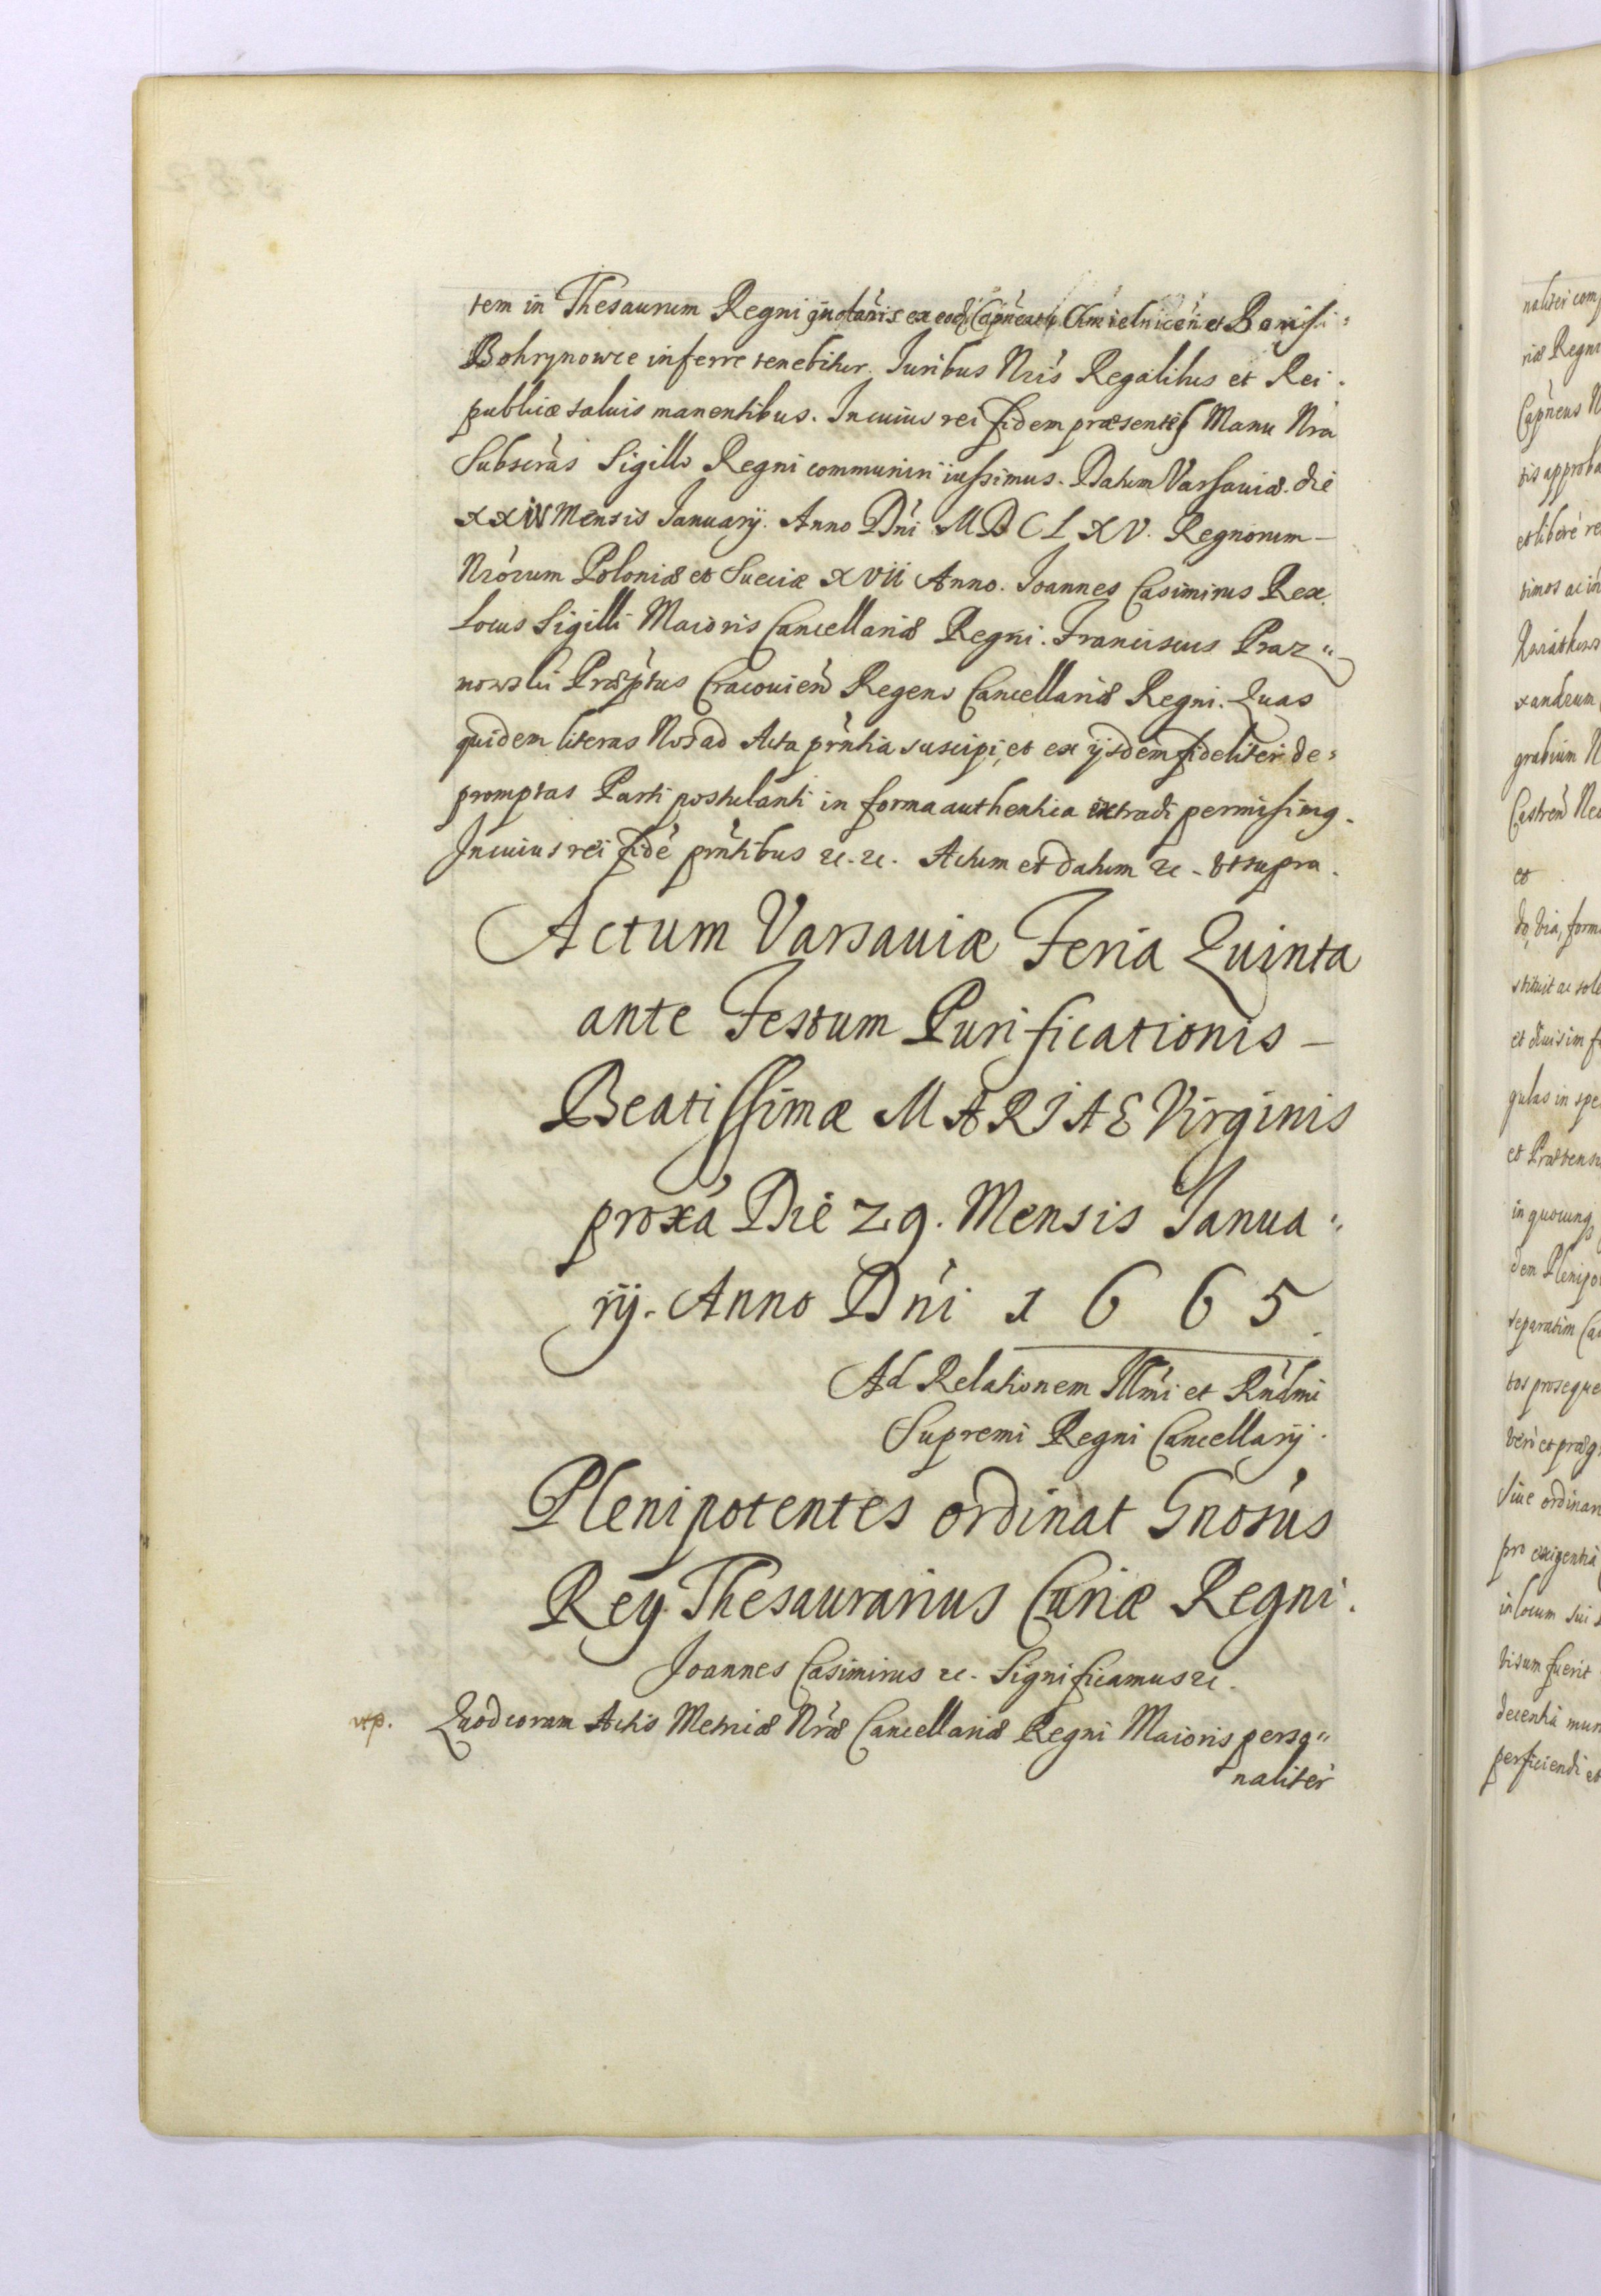 tem in Thesaurum Regni quotañis ex eod Capneatu Chmielnicen et Bonis
Bohrynowce inferre tenebitur. Iuribus Nris Regalibus et Rei-
publicæ saluis manentibus. In cuius rei fidem præsentes Manu Nra
Subscras Sigillo Regni communiri iussimus. Datum Varsauiæ. die
XXIV Mensis Ianuarij. Anno Dni MDCLXV. Regnorum –
Nrorum Poloniæ et Sueciæ XVII Anno. Ioannes Casimirus Rex.
Locus Sigilli Maioris Cancellariæ Regni. Franciscus Praz=
nowski Præptus Cracouien Regens Cancellariæ Regni. Quas
quidem literas Nos ad Acta prntia suscipi, et ex ijsdem fideliter de=
promptas Parti postulanti in forma authentica extradi permisimq.
In cuius rei fidē prntibus &c. &c. Actum et datum &c. vt supra.
Actum Varsauiæ Feria Quinta
ante Festum Purificationis –
Beatissimæ MARIAE Virginis
proxa Die 29. Mensis Ianua=
rij. Anno Dni 1665.
Ad Relationem Illmi et Rndmi
Supremi Regni Cancellarij.
Plenipotentes ordinat Gnosus
Rey Thesaurarius Curiæ Regni.
Joannes Casimirus &c. Significamus &c.
Quod coram Actis Metricæ Nræ Cancellariæ Regni Maioris perso=
naliter
naliter com
riæ Regni
Capneus N
tis approba
et liberè re
timos ac in
xandrum
grabium N
Castren
et
do, via, form
stituit ac sole
et diuisim
gulas in spe
et Prætensi
in quocunq
dem Plenipo
separatim
tos proseque
veri et præg
siue ordinan
pro exigentia
in locum sui s
visum fuerit
decentia mun
perficiendi et